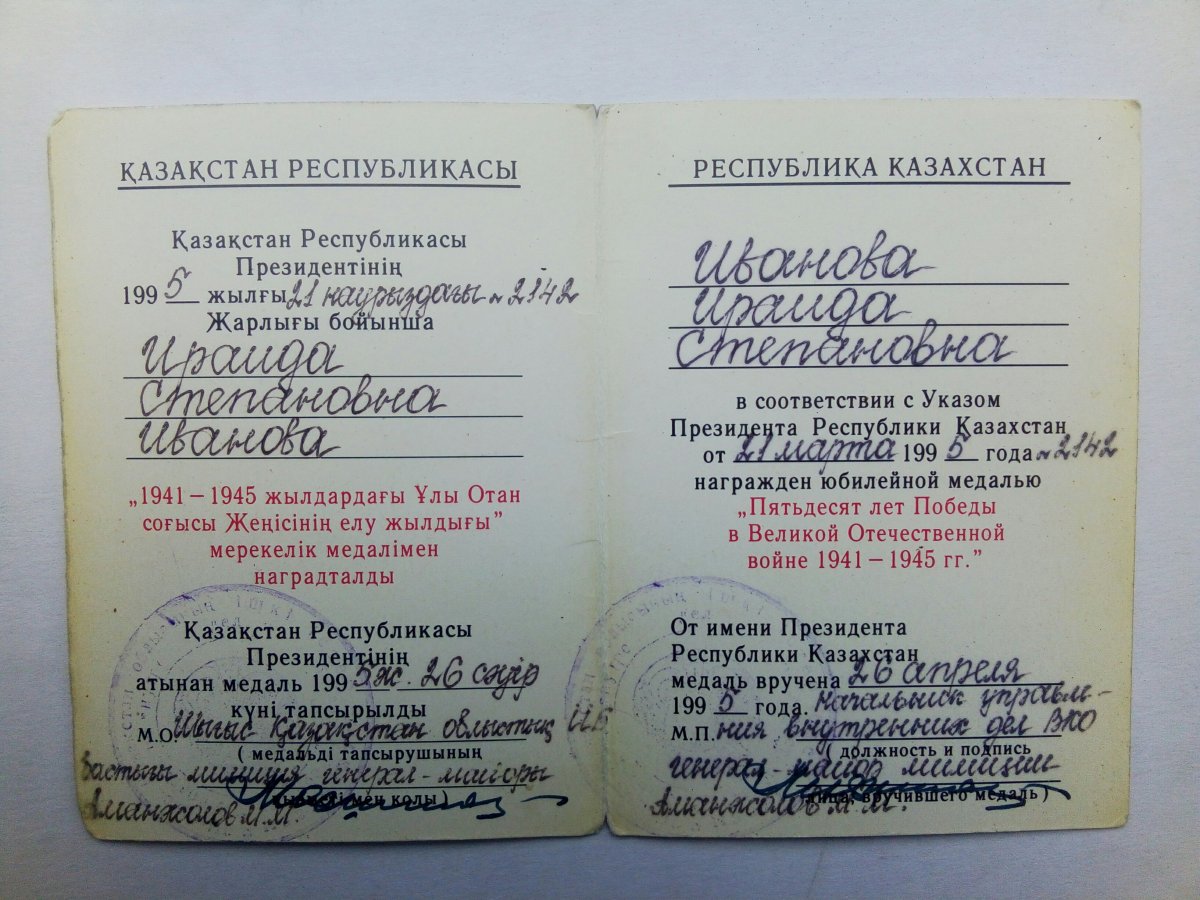 ҚАЗАҚСТАН РЕСПУБЛИКАСЫ
Қазақстан Республикасы
Президентінің
1995 жылғы 21 наурыздағы № 2142
Жарлығы бойынша
Ираида
Степановна
Иванова
„1941 – 1945 жылдардағы Ұлы Отан
соғысы Жеңісінің елу жылдығы”
мерекелік медалімен
наградталды
Қазақстан Республикасы
Президентінің
атынан медаль 1995 ж. 26 сәуір
күні тапсырылды
М.О. Шығыс Қазақстан облыстық ІІБ
( медальді тапсырушының
бастығы милиция генерал-майоры
қолы )
Аманжолов М.М.
РЕСПУБЛИКА КАЗАХСТАН
Иванова
Ираида
Степановна
в соответствии с Указом
Президента Республики Казахстан
от 21 марта 1995 года № 2142
награжден юбилейной медалью
„Пятьдесят лет Победы
в Великой Отечественной
войне 1941 – 1945 гг.”
От имени Президента
Республики Казахстан
медаль вручена 26 апреля
1995 года. начальник управле-
М.П. ния внутренних дел ВКО
( должность и подпись
генерал-майор милиции
лица, вручившего медаль )
Аманжолов М.М.